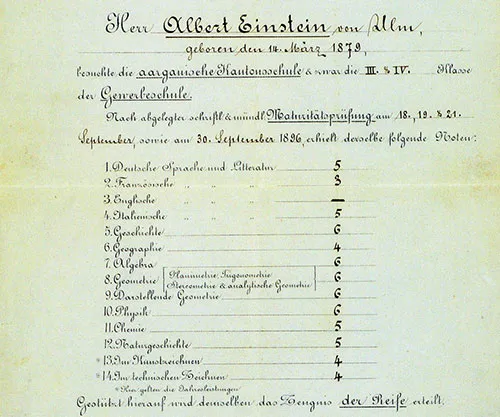 Herr Albert Einstein von Ulm,
geboren den 14. März 1879,
besuchte die aargauische Kantonsschule & zwar die III. & IV. Klasse
der Gewerbeschule.
Nach abgelegter schriftl. & mündl. Maturitätsprüfung am 18., 19. & 21.
September, sowie am 30. September 1896, erhielt derselbe folgende Noten:
1. Deutsche Sprache und Litteratur 5
2. Französische " " " 3
3. Englische " " " —
4. Italienische " " " 5
5. Geschichte 6
6. Geographie 4
7. Algebra 6
8. Geometrie (Planimetrie, Trigonometrie 6
Stereometrie & analytische Geometrie)
9. Darstellende Geometrie 6
10. Physik 6
11. Chemie 5
12. Naturgeschichte 5
* 13. Im Kunstzeichnen 4
* 14. Im technischen Zeichnen 4
* Hier gelten die Jahresleistungen.
Gestützt hierauf wird demselben das Zeugnis der Reife erteilt.